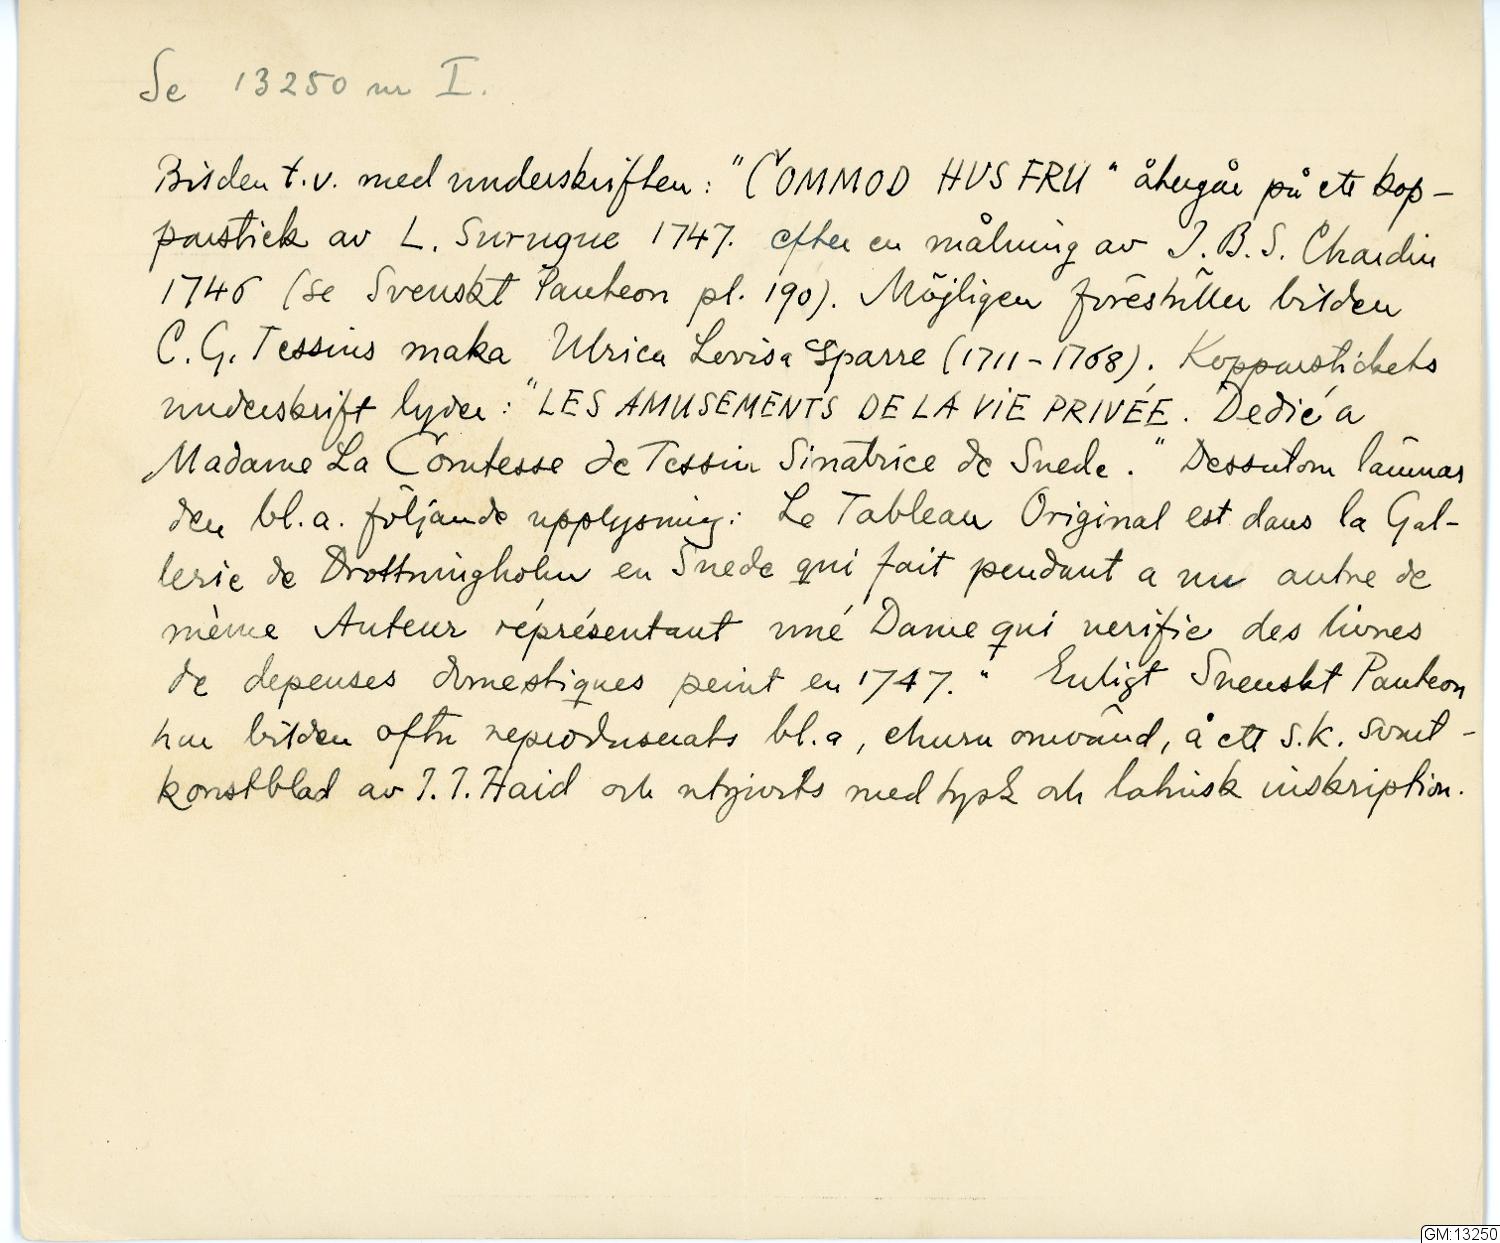 Se 13250 nr I.
Bilden t.v. med underskriften: "COMMOD HVSFRU" återgår på ett kop-
parstick av L. Surugue 1747. efter en målning av J.B.S. Chardin
1746 (se Svenskt Panteon pl. 190). Möjligen föreställer bilden
C.G. Tessins maka Ulrica Lovisa Sparre (1711-1768). Kopparstickets
underskrift lyder: "LES AMUSEMENTS DE LA VIE PRIVÉE. Dedié a
Madame La Comtesse de Tessin Sinatrice de Suede." Dessutom lämnar
den bl.a. följande upplysning: Le Tableau Original est dans la Gal-
lerie de Drottningholm en Suede qui fait pendant a un autre de
même Auteur réprésentant uné Dame qui verifie des livres
de depenses domestiques peint en 1747." Enligt Svenskt Panteon
har bilden ofta reproducerats bl.a, ehuru omvänd, å ett s.k. svart-
konstblad av J.J. Haid och utgivits med tysk och latinsk inskription.
GM:13250